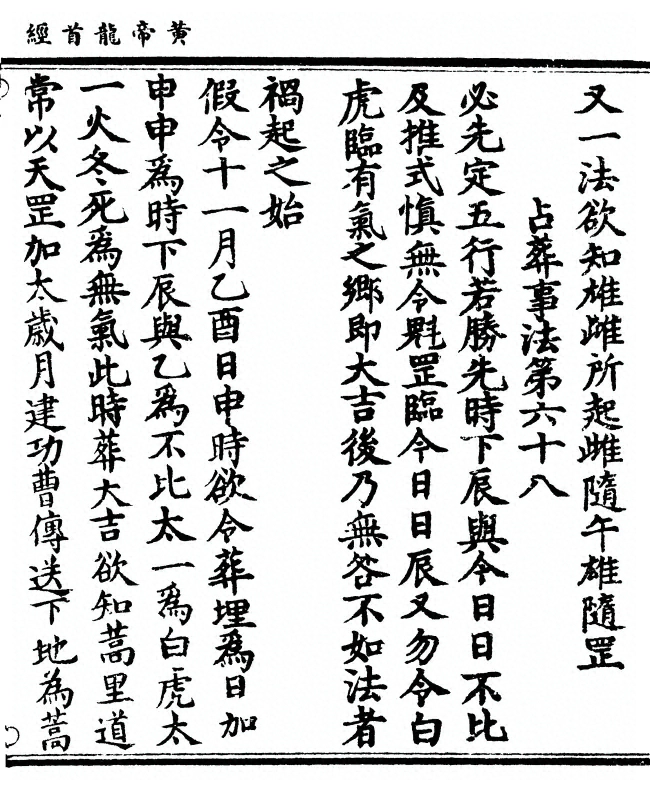 黃帝龍首經
又一法欲知雄雌所起雌隨午雄隨罡
占葬事法第六十八
必先定五行若勝先時下辰與今日日不比
及推式慎無令魁罡臨今日日辰又勿令白
虎臨有氣之鄉即大吉後乃無咎不如法者
禍起之始
假令十一月乙酉日申時欲令葬埋爲日加
申申爲時下辰與乙爲不比太一爲白虎太
一火冬死爲無氣此時葬大吉欲知蒿里道
常以天罡加太歲月建功曹傳送下地為蒿